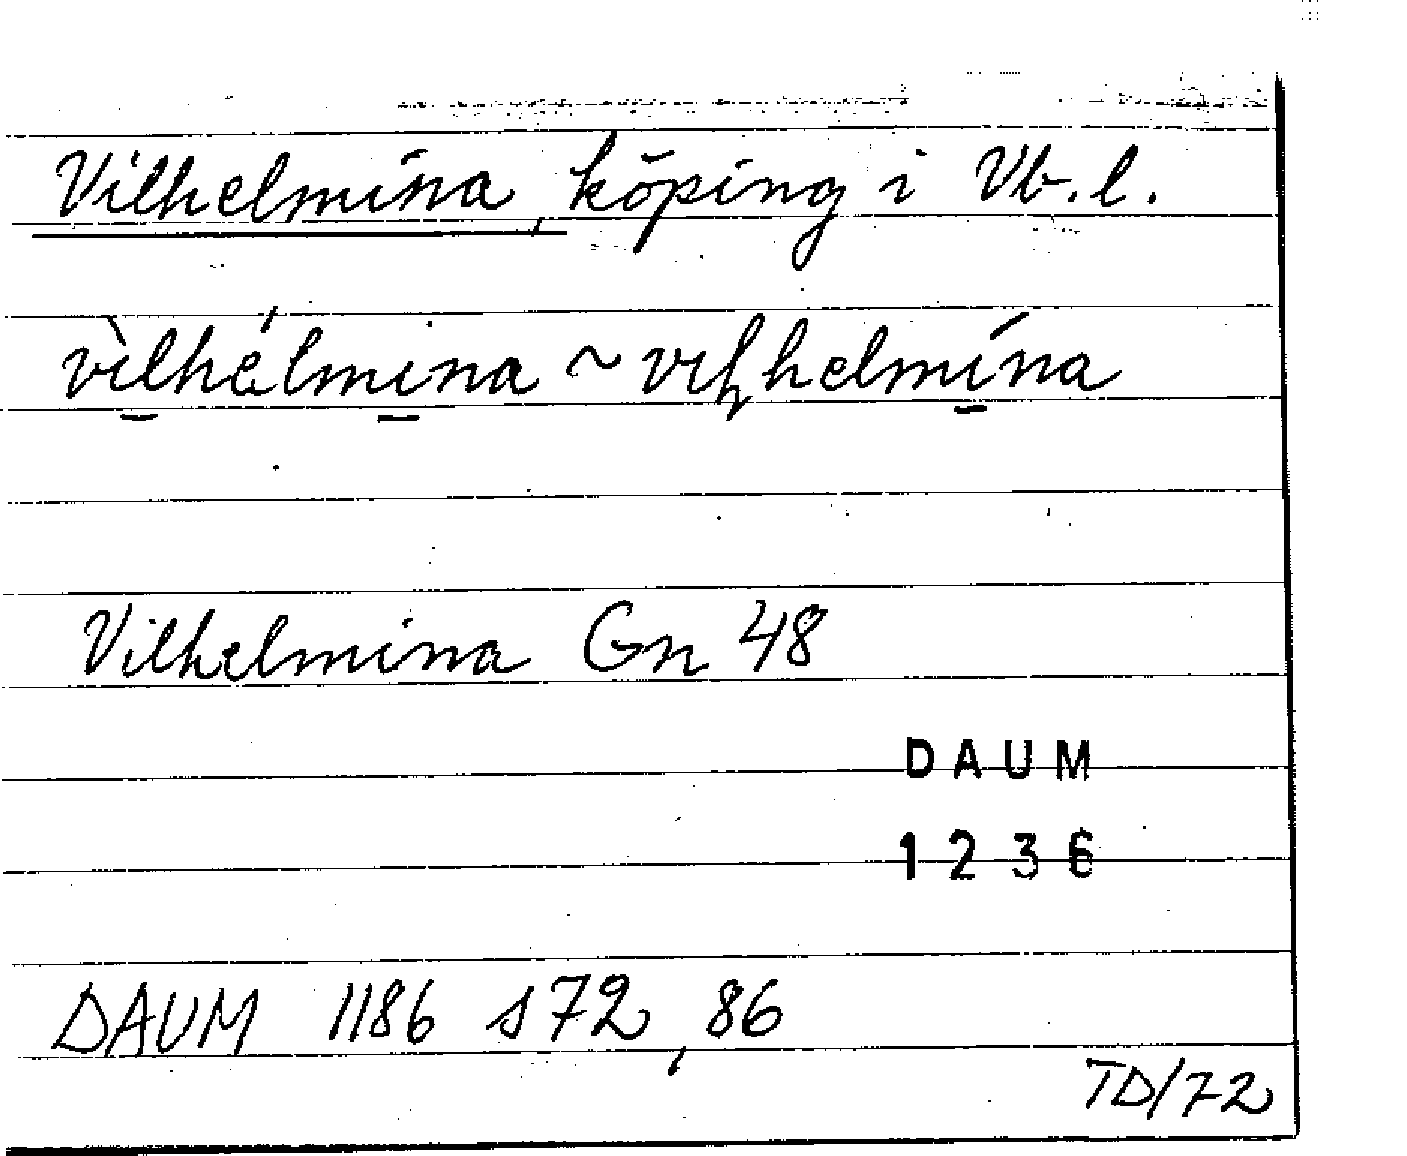 Vilhelmina, köping i Vb.l.
vìlhélmina ~ vilhelmína
Vilhelmina Gn 48
DAUM
1236
DAUM 1186 s 72, 86
TD/72